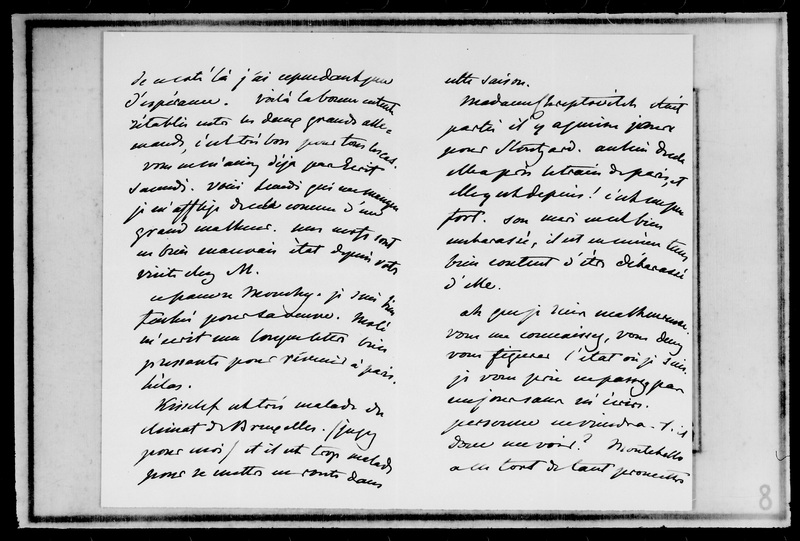 de ce côté là j'ai cependant peu
d'espérance. Voilà la bonne entente
rétablie entre les deux grands alle-
mands, c'est très bon pour tous les cas.
vous m'aviez déjà pas écrit
samedi. Voici lundi qui me manque
je m'afflige de cela comme d'un
grand malheur. mes nerfs sont
en bien mauvais état depuis votre
visite chez M.
ce pauvre Mouchy. je suis bien
fachée pour sa veuve. Molé
m'écrit une longue lettre bien
pressante pour revenir à paris.
hélas.
Kisselef est très malade du
climat de Bruxelles. (jugez
pour moi) et il est trop malade
pour se mettre en route dans
cette saison.
Madame était
partie il y a quinze jours
pour Stoutgard. au lieu de cela
elle a pris le train de paris, et
elle y est depuis! c'est un peu
fort. son mari est bien
embarassé, il est en même tems
bien content d'être débarassé
d'elle.
ah que je suis malheureuse.
vous me connaissez, vous devez
vous figurer l'état où je suis.
je vous prie ne passez pas
un jour sans m'écrire.
personne ne viendra-t-il
donc me voir? Montebello
a eu tort de tant promettre
8